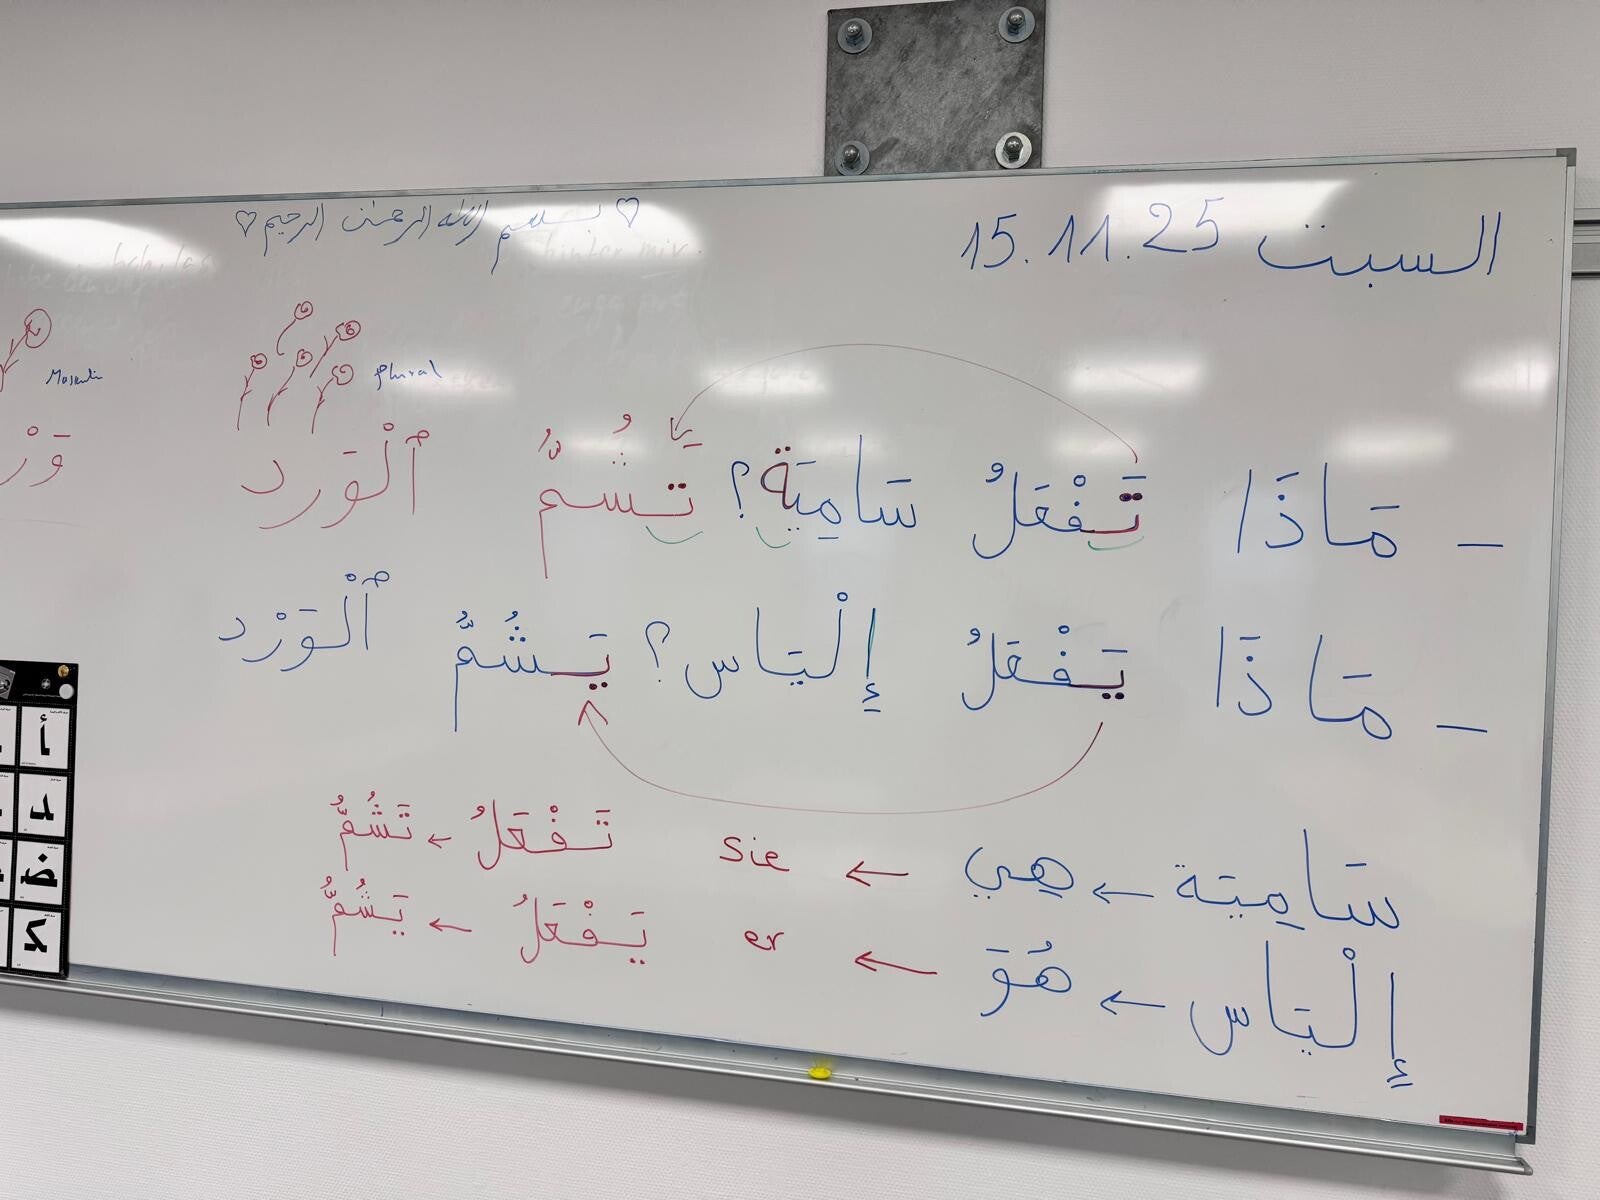 ♡ بسم الله الرحمن الرحيم ♡
السبت 15.11.25
plural
- مَاذَا تَفْعَلُ سَامِيَة؟ تَشُمُّ ٱلْوَرد
- مَاذَا يَفْعَلُ إِلْيَاس؟ يَشُمُّ ٱلْوَرْد
سَامِيَة ← هِي ← sie تَفْعَلُ ← تَشُمُّ
إِلْيَاس ← هُوَ ← er يَفْعَلُ ← يَشُمُّ